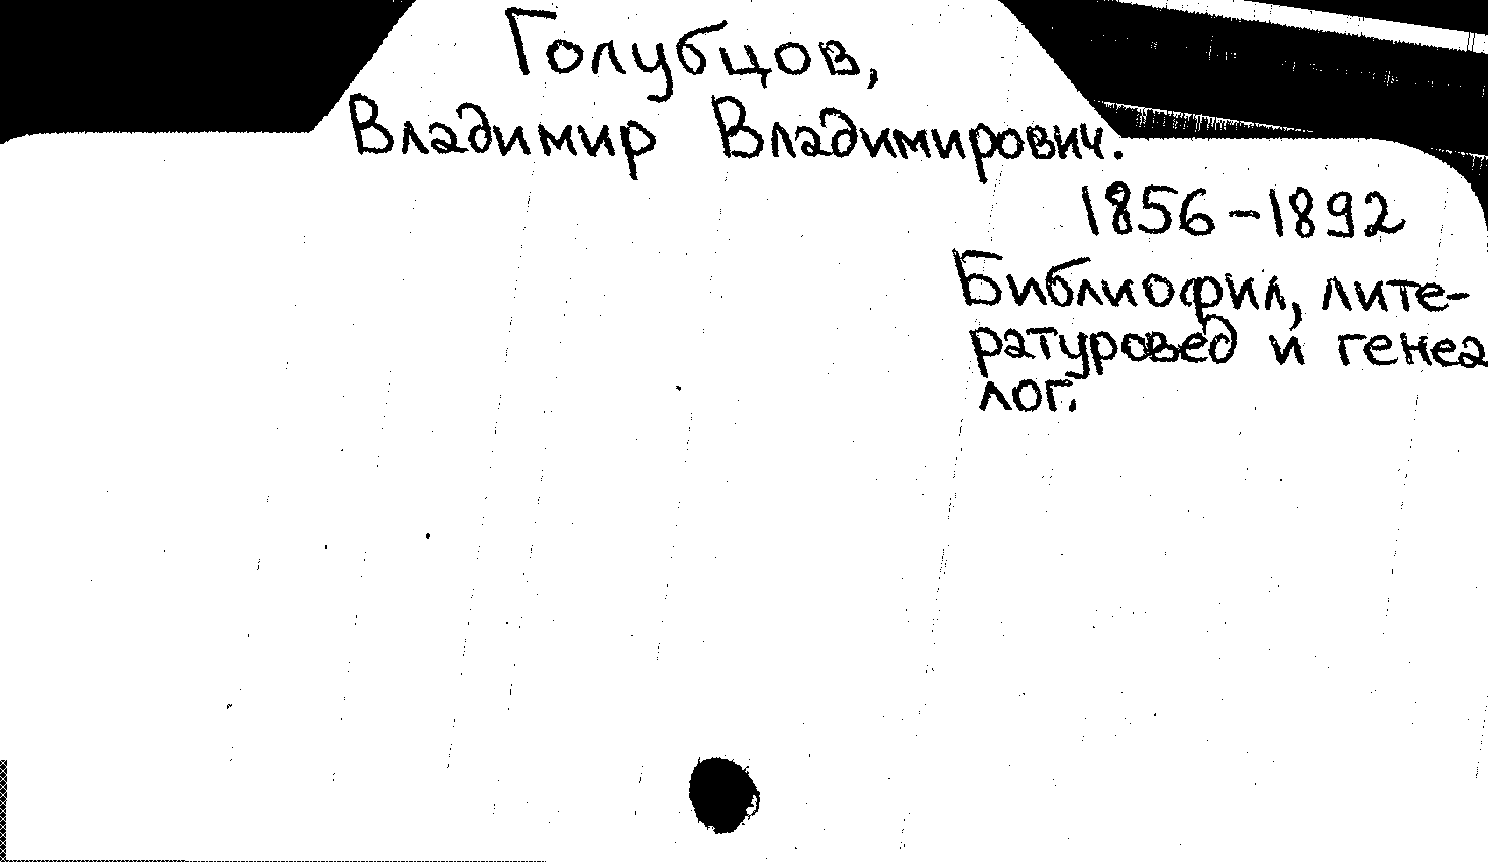 Голубцов,
Владимир Владимирович.
1856-1892
Библиофил, лите-
ратуровед и генеа
лог.